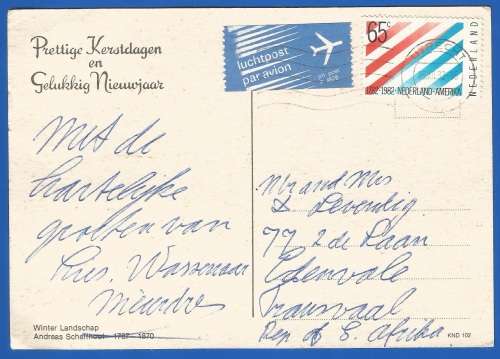 Prettige Kerstdagen
en
Gelukkig Nieuwjaar
luchtpost
par avion
65c
NEDERLAND
1782-1982·NEDERLAND-AMERIKA
Met de
hartelijke
groeten van
Wassenaar
Mr and Mrs
Levendig
77 2 de Laan
Edenvale
Transvaal
Rep of S. Afrika
Winter Landschap
Andreas Schelfhout 1787 - 1870
KND 102